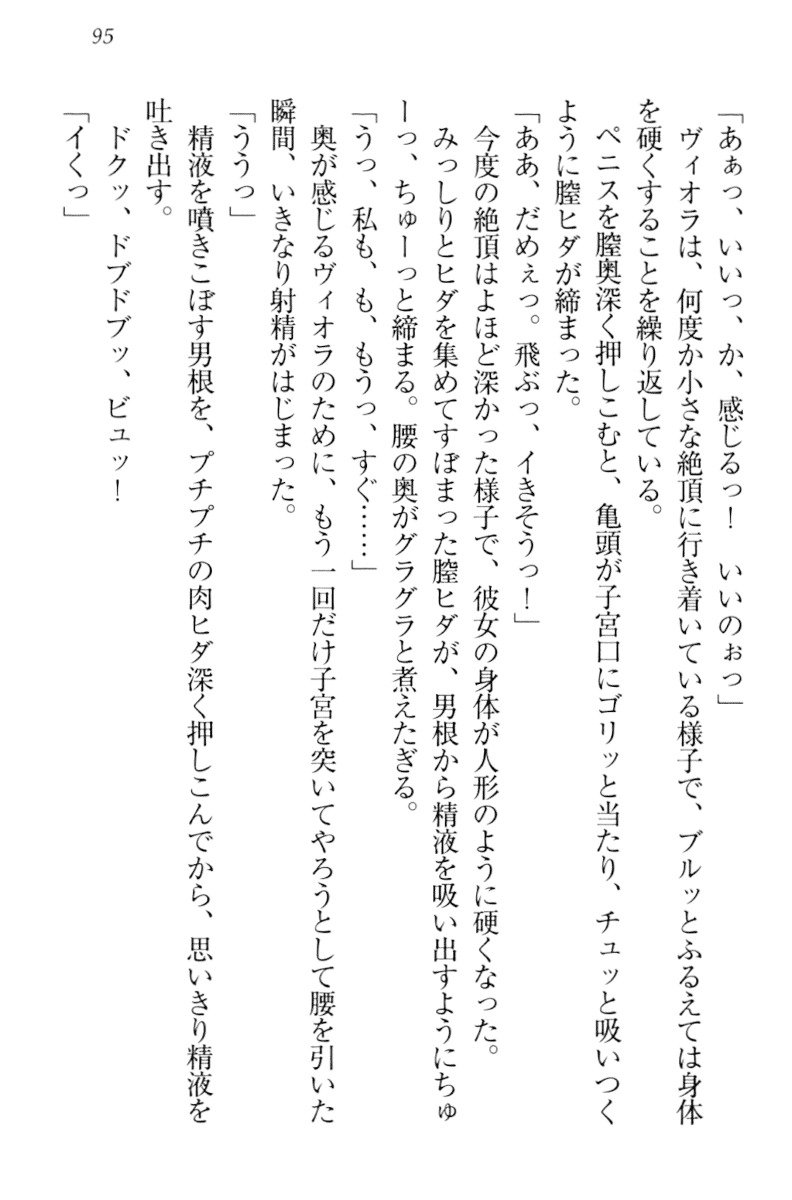 95
「あぁっ、いいっ、か、感じるっ！　いいのぉっ」
ヴィオラは、何度か小さな絶頂に行き着いている様子で、ブルッとふるえては身体
を硬くすることを繰り返している。
ペニスを膣奥深く押しこむと、亀頭が子宮口にゴリッと当たり、チュッと吸いつく
ように膣ヒダが締まった。
「ああ、だめぇっ。飛ぶっ、イきそうっ！」
今度の絶頂はよほど深かった様子で、彼女の身体が人形のように硬くなった。
みっしりとヒダを集めてすぼまった膣ヒダが、男根から精液を吸い出すようにちゅ
ーっ、ちゅーっと締まる。腰の奥がグラグラと煮えたぎる。
「うっ、私も、も、もうっ、すぐ……」
奥が感じるヴィオラのために、もう一回だけ子宮を突いてやろうとして腰を引いた
瞬間、いきなり射精がはじまった。
「ううっ」
精液を噴きこぼす男根を、プチプチの肉ヒダ深く押しこんでから、思いきり精液を
吐き出す。
ドクッ、ドブドブッ、ビュッ！
「イくっ」